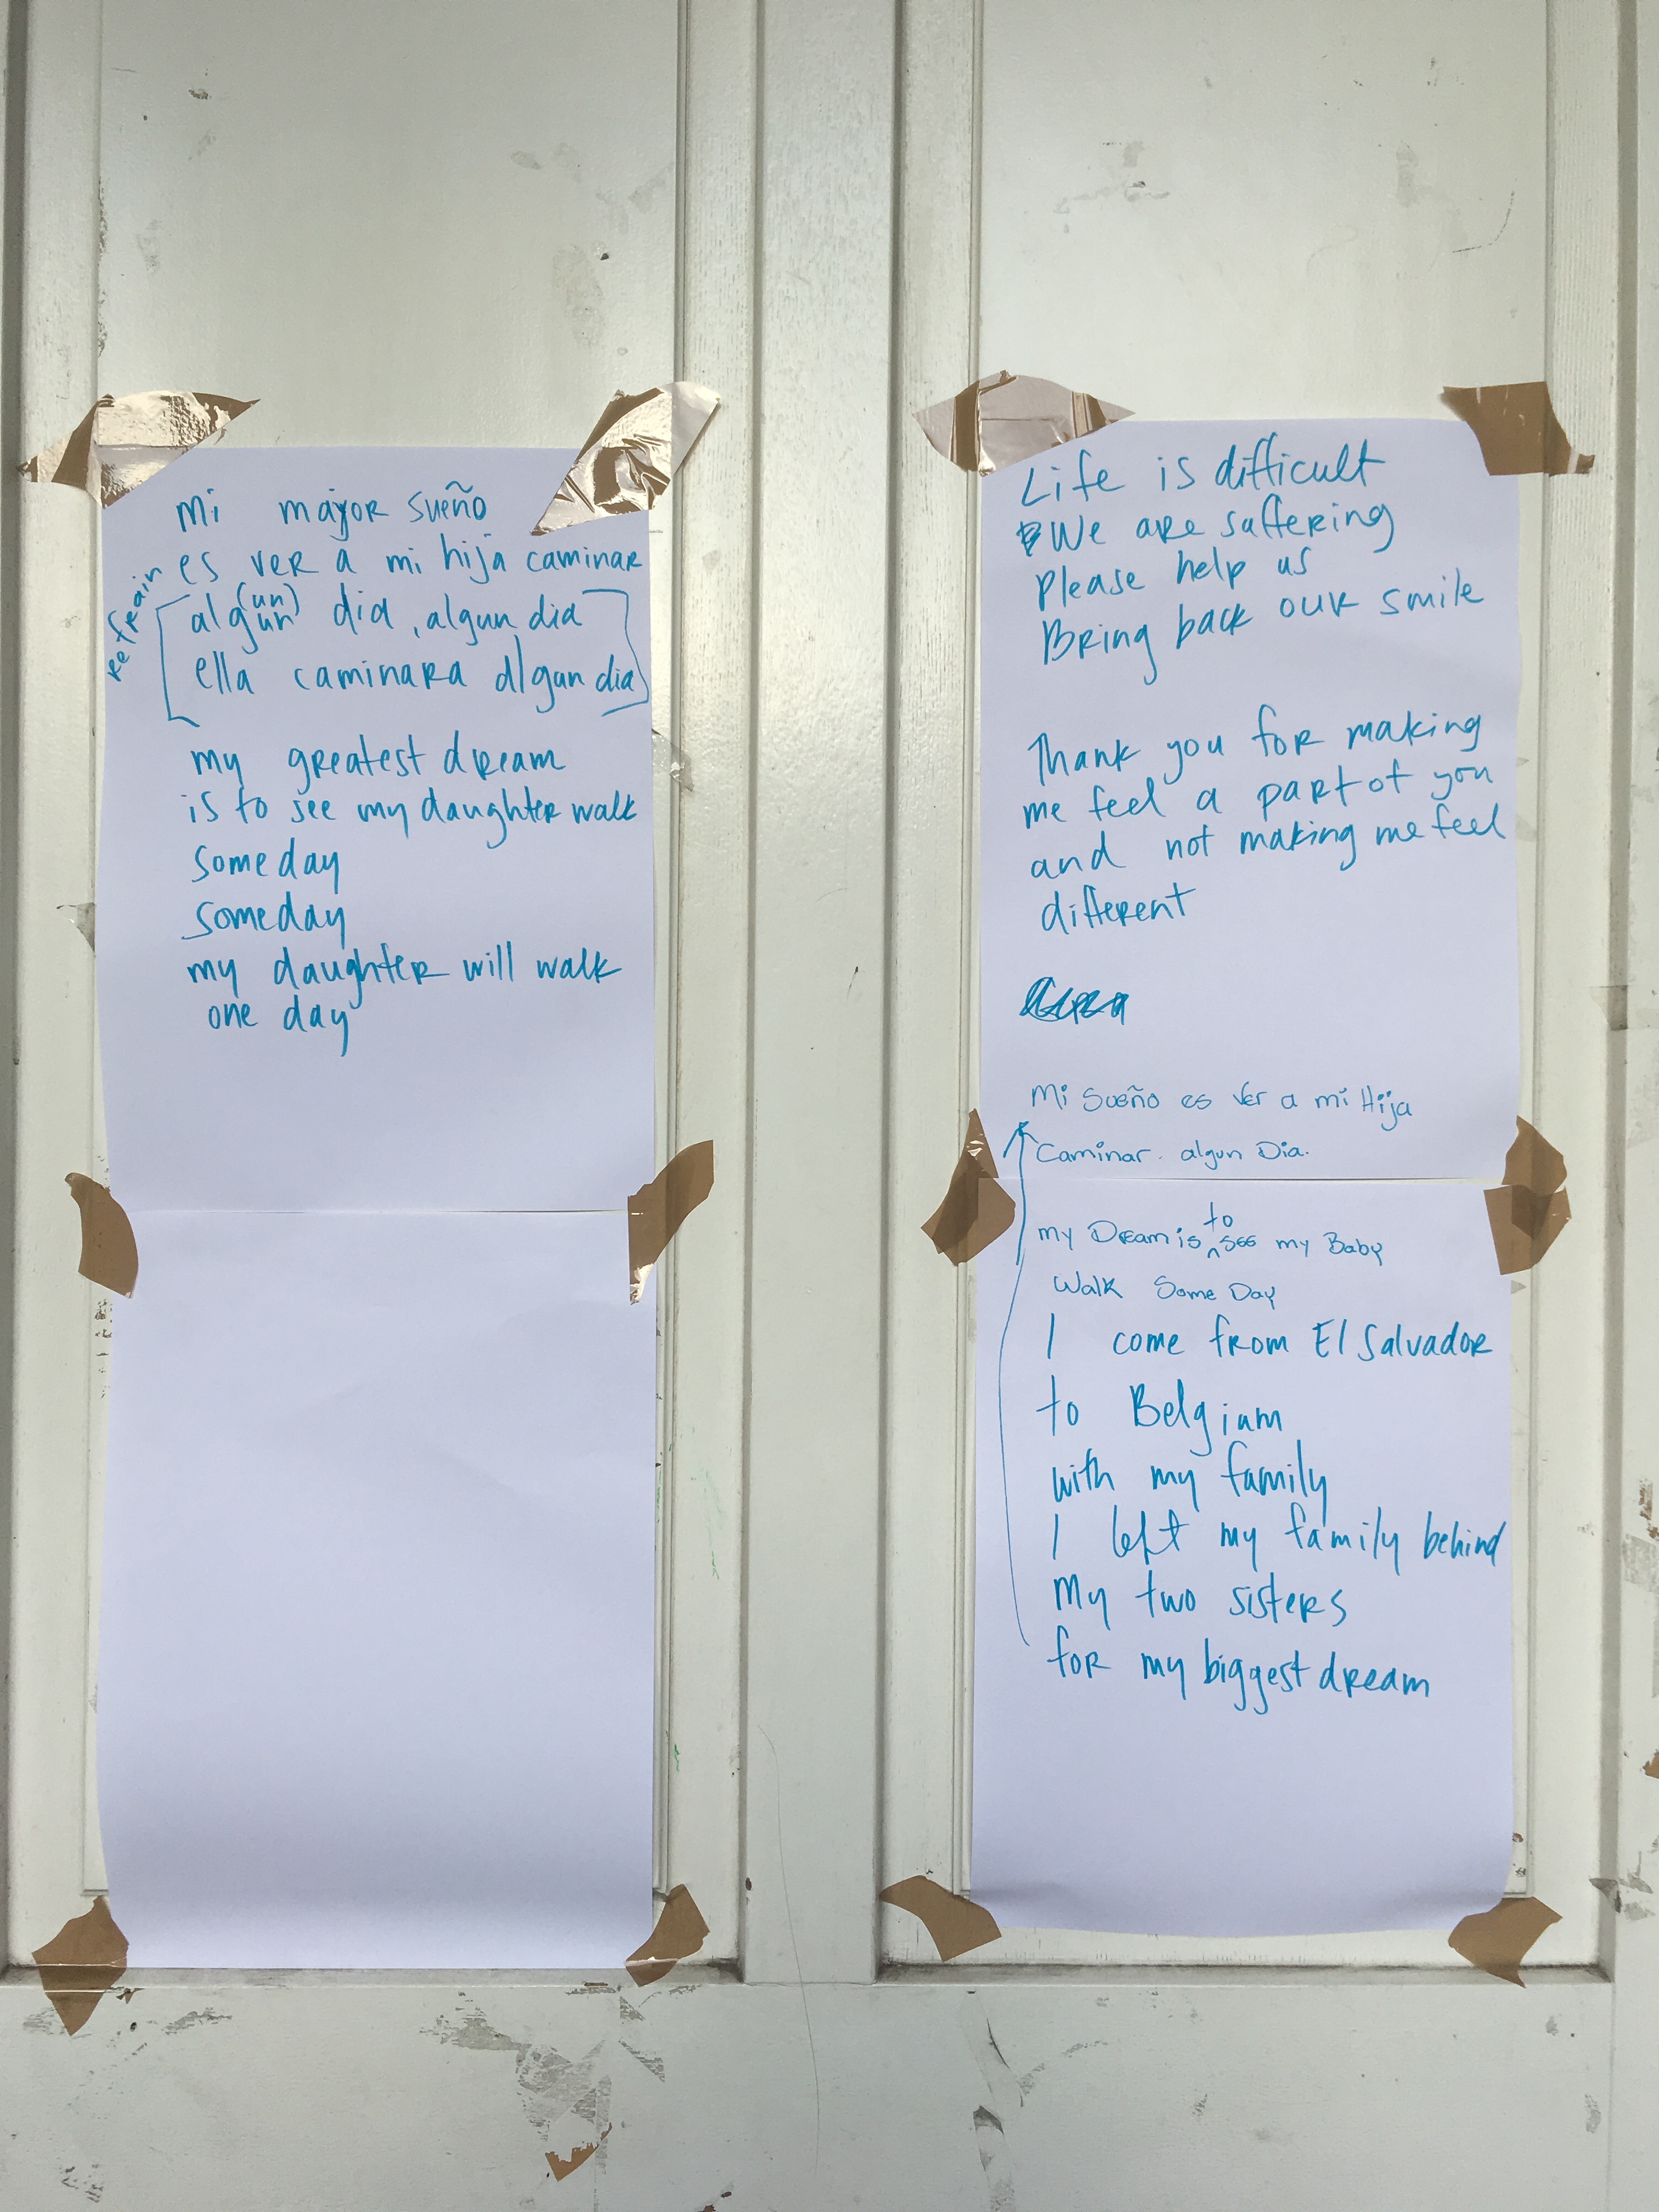 Mi mayor sueño
es ver a mi hija caminar
refrain
algun (un) dia, algun dia
ella caminara algun dia
my greatest dream
is to see my daughter walk
someday
someday
my daughter will walk
one day
Life is difficult
We are suffering
Please help us
Bring back our smile
Thank you for making
me feel a part of you
and not making me feel
different
Mi Sueño es Ver a mi Hija
Caminar. algun Dia.
my Dream is to see my Baby
Walk Some Day
I come from El Salvador
to Belgium
with my family
I left my family behind
My two sisters
for my biggest dream